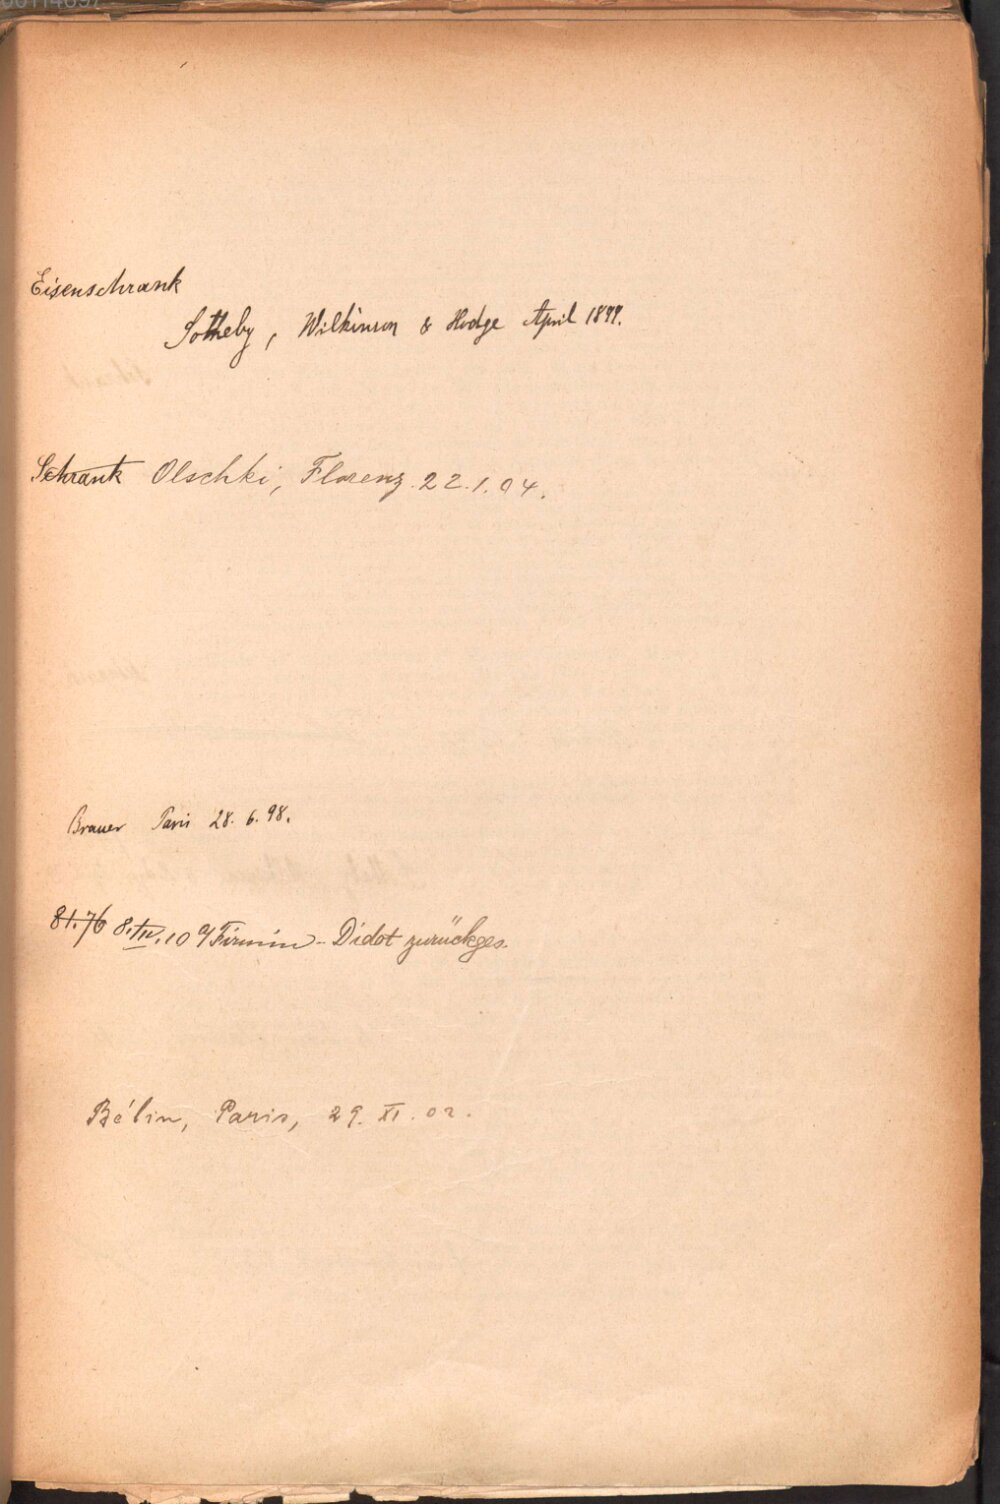 Eisenschrank
Sotheby, Wilkinson & Hodge April 1899.
Schrank Olschki, Florenz. 22.1.04.
Brauer Paris 28. 6. 98.
81.76 8.IV.10 a/Firmin-Didot zurückges.
Bélin, Paris, 29. XI. 02.